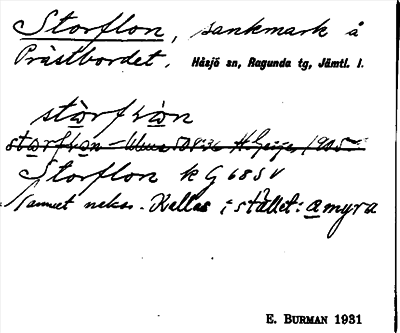 Storflon, sankmark å
Prästbordet, Håsjö sn, Ragunda tg, Jämtl. l.
stòrfłòn
Storflon k G 68 SV
Namnet nekas. Kallas i stället: amyra
E. BURMAN 1931